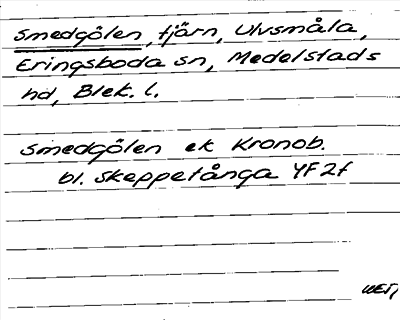 Smedgölen, tjärn, Ulvsmåla,
Eringsboda sn, Medelstads
hd, Blek. l.
Smedgölen ek Kronob.
bl. Skeppetånga YF2f